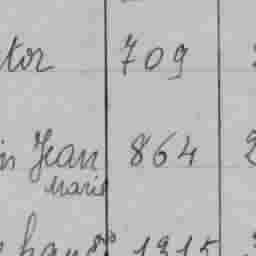 tor 709
in Jean 864 2
Marie
1315